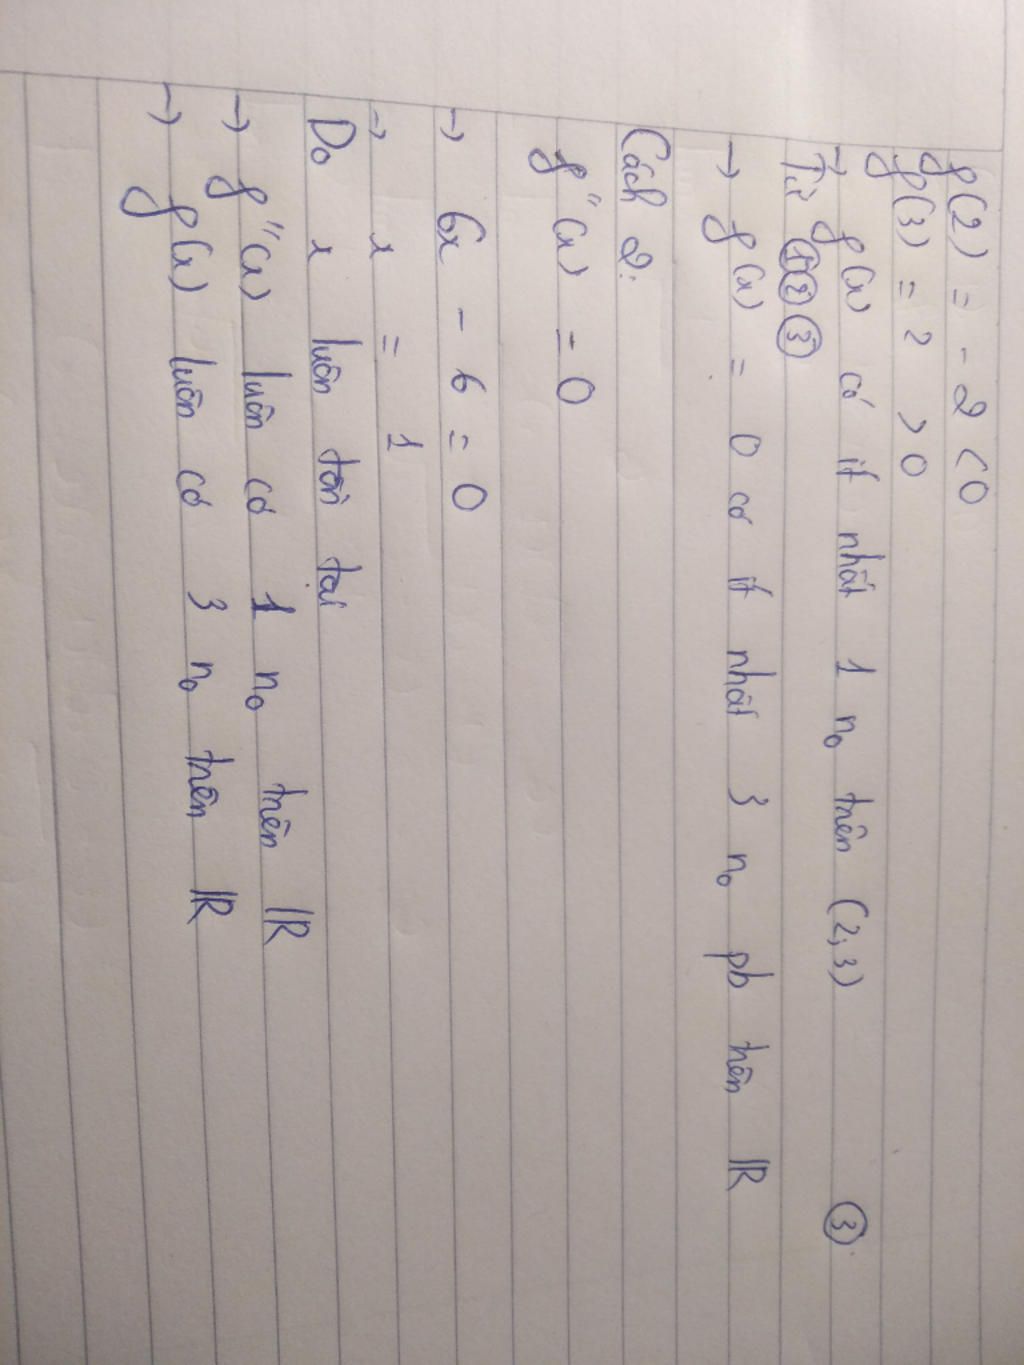 f(2) = -2 < 0
f(3) = 2 > 0
→ f(x) có ít nhất 1 n₀ trên (2,3) ③
Từ ①②③
→ f(x) = 0 có ít nhất 3 n₀ pb trên ℝ
Cách 2:
f''(x) = 0
→ 6x - 6 = 0
→ x = 1
Do x luôn tồn tại
→ f''(x) luôn có 1 n₀ trên ℝ
→ f(x) luôn có 3 n₀ trên ℝ